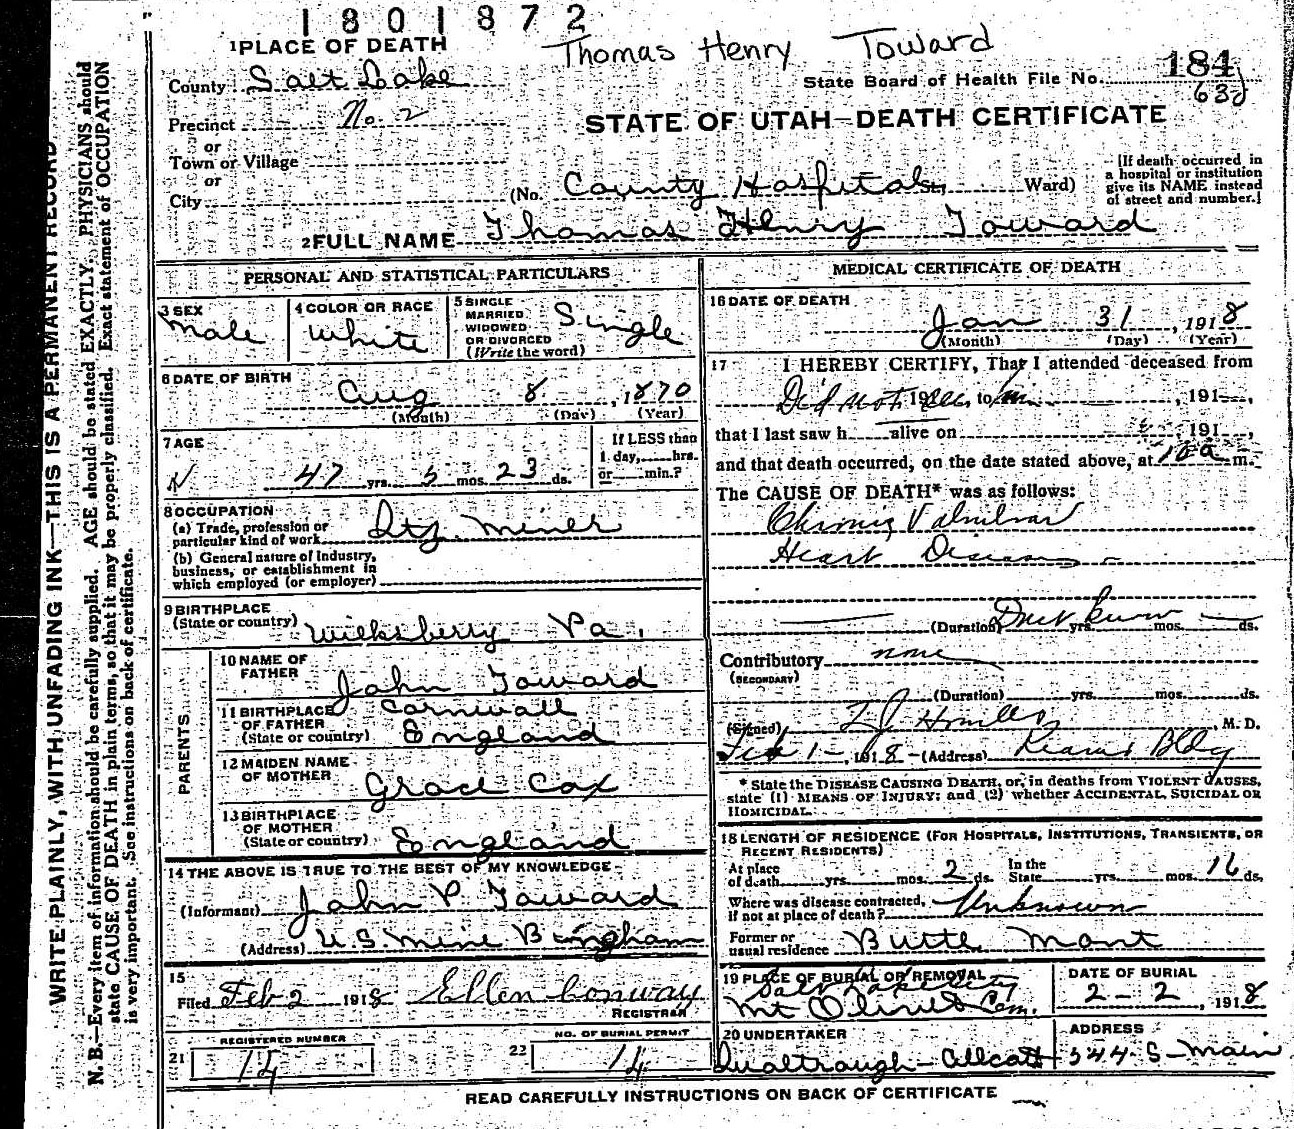 1801872
1 PLACE OF DEATH
Thomas Henry Toward
County Salt Lake
State Board of Health File No. 184
63
Precinct No. 2
STATE OF UTAH—DEATH CERTIFICATE
or
Town or Village
or
City
(No. County Hospital St., Ward)
[If death occurred in
a hospital or institution
give its NAME instead
of street and number.]
2 FULL NAME Thomas Henry Toward
PERSONAL AND STATISTICAL PARTICULARS
3 SEX
Male
4 COLOR OR RACE
White
5 SINGLE
MARRIED
WIDOWED
OR DIVORCED
(Write the word)
Single
6 DATE OF BIRTH
Aug 8, 1870
(Month) (Day) (Year)
7 AGE
47 yrs. 5 mos. 23 ds.
If LESS than
1 day, hrs.
or min.?
8 OCCUPATION
(a) Trade, profession or
particular kind of work Qtz. Miner
(b) General nature of Industry,
business, or establishment in
which employed (or employer)
9 BIRTHPLACE
(State or country) Wilksberry Pa.
PARENTS
10 NAME OF
FATHER
John Toward
11 BIRTHPLACE
OF FATHER
(State or country)
Cornwall
England
12 MAIDEN NAME
OF MOTHER
Grace Cox
13 BIRTHPLACE
OF MOTHER
(State or country)
England
14 THE ABOVE IS TRUE TO THE BEST OF MY KNOWLEDGE
(Informant) John P. Toward
(Address) U.S. Mine Bingham
15
Filed Feb 2 1918 Ellen Conway
REGISTRAR
21 REGISTERED NUMBER
14
22 NO. OF BURIAL PERMIT
14
MEDICAL CERTIFICATE OF DEATH
16 DATE OF DEATH
Jan 31, 1918
(Month) (Day) (Year)
17 I HEREBY CERTIFY, That I attended deceased from
Did not see him 191, to , 191,
that I last saw h alive on 191,
and that death occurred, on the date stated above, at 10 a m.
The CAUSE OF DEATH* was as follows:
Chronic Valvular
Heart Disease
(Duration) Dont know yrs. mos. ds.
Contributory none
(SECONDARY)
(Duration) yrs. mos. ds.
(Signed) , M. D.
Feb 1, 1918 (Address) Kearns Bldg
* State the DISEASE CAUSING DEATH, or, in deaths from VIOLENT CAUSES,
state (1) MEANS OF INJURY; and (2) whether ACCIDENTAL, SUICIDAL OR
HOMICIDAL.
18 LENGTH OF RESIDENCE (FOR HOSPITALS, INSTITUTIONS, TRANSIENTS, OR
RECENT RESIDENTS)
At place
of death yrs. mos. 2 ds.
In the
State yrs. mos. 16 ds.
Where was disease contracted,
if not at place of death? Unknown
Former or
usual residence Butte Mont
19 PLACE OF BURIAL OR REMOVAL
Salt Lake City
Mt Olivet Cem.
DATE OF BURIAL
2-2, 1918
20 UNDERTAKER
ADDRESS
344 S-Main
READ CAREFULLY INSTRUCTIONS ON BACK OF CERTIFICATE
WRITE PLAINLY, WITH UNFADING INK—THIS IS A PERMANENT RECORD
N. B.—Every item of information should be carefully supplied. AGE should be stated EXACTLY. PHYSICIANS should
state CAUSE OF DEATH in plain terms, so that it may be properly classified. Exact statement of OCCUPATION
is very important. See instructions on back of certificate.